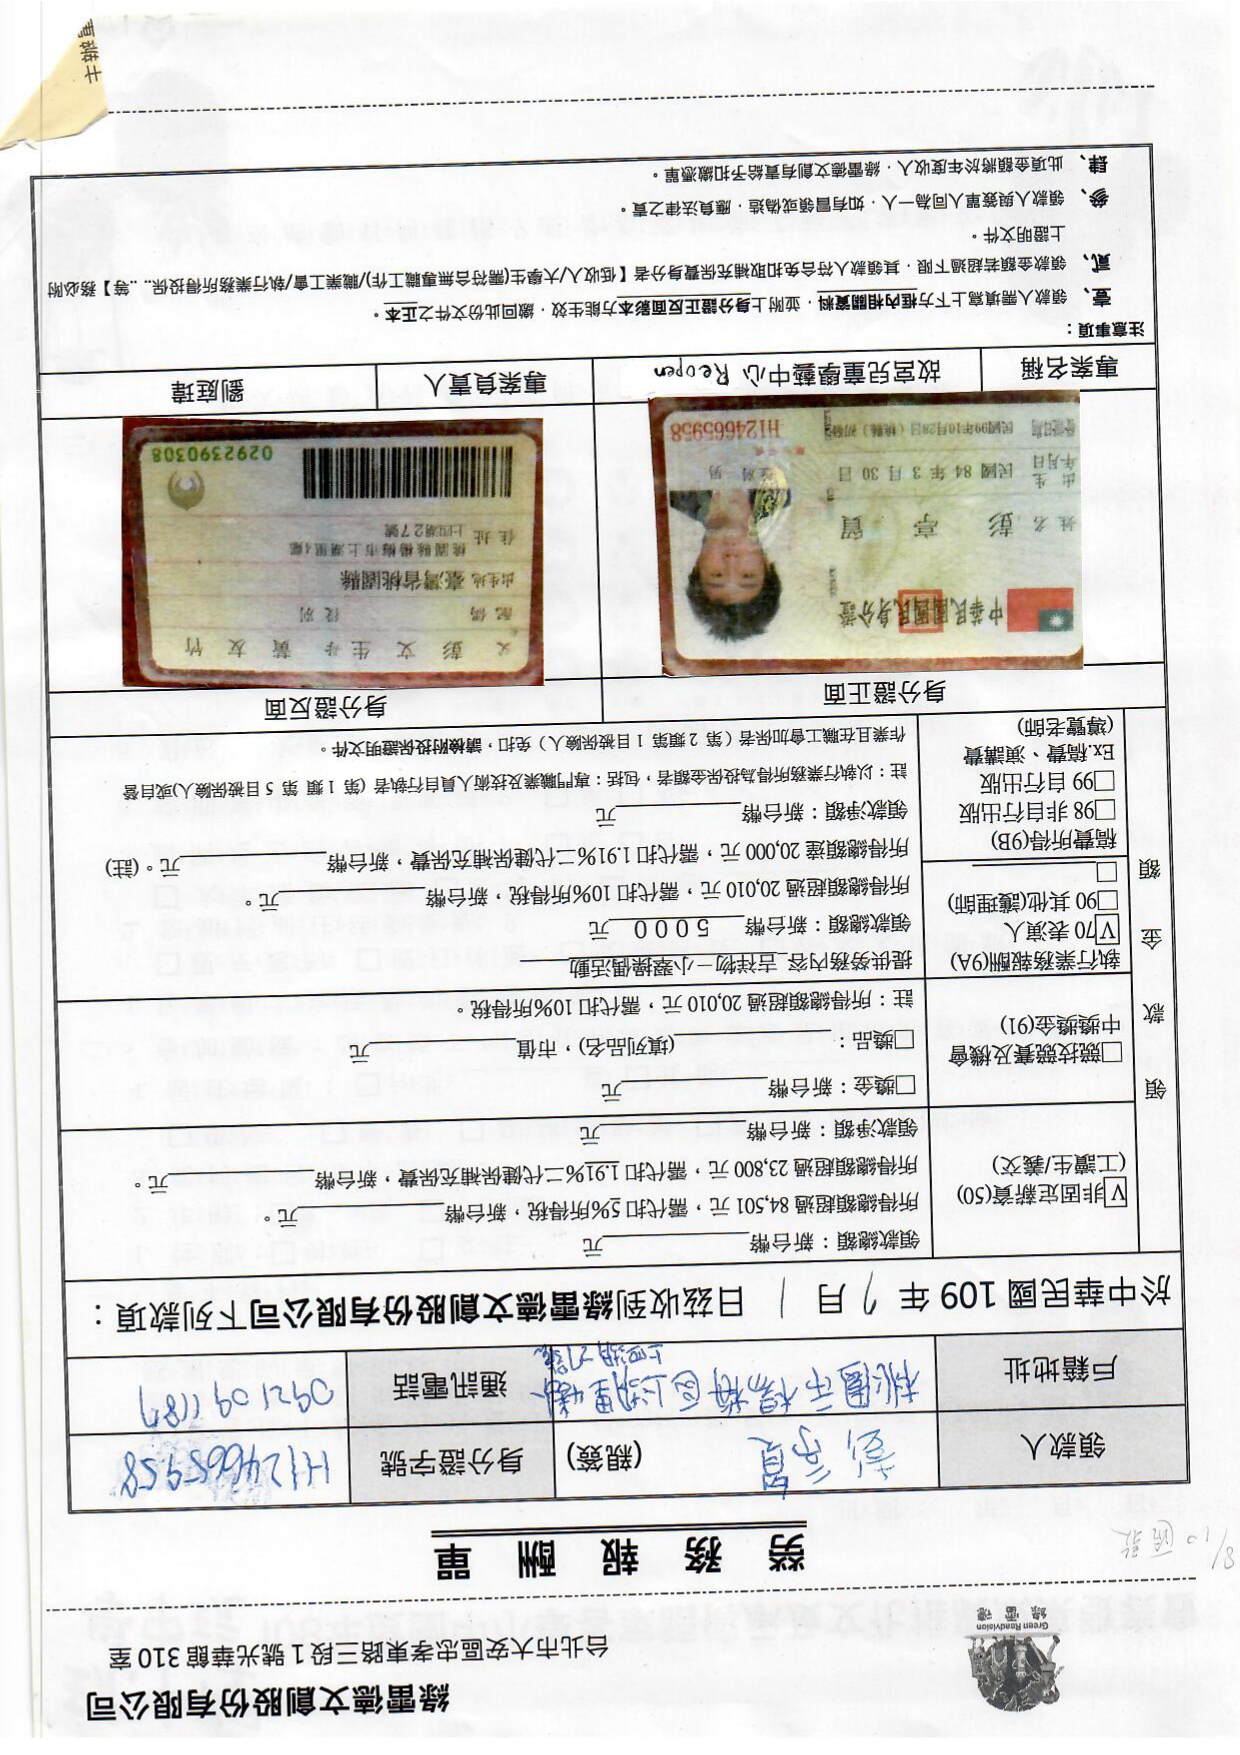 綠雷德文創股份有限公司
台北市大安區忠孝東路三段1號光華館310室
Green Roadvision
綠雷德
8/10 匯款
勞務報酬單
領款人 彭亭貿 (親簽) 身分證字號 H124665958
戶籍地址 桃園市楊梅區上湖里4鄰 上四湖27號 通訊電話
於中華民國 109 年 7 月 1 日茲收到綠雷德文創股份有限公司下列款項：
領款金額
V 非固定薪資(50)
(工讀生/義交)
領款總額：新台幣____元
所得總額超過 84,501 元，需代扣 5%所得稅，新台幣____元。
所得總額超過 23,800 元，需代扣 1.91%二代健保補充保費，新台幣____元。
領款淨額：新台幣____元
□競技競賽及機會
中獎獎金(91)
□獎金：新台幣____元
□獎品：____(填列品名)，市值____元
註：所得總額超過 20,010 元，需代扣 10%所得稅。
執行業務報酬(9A)
V 70 表演人
□90 其他(護理師)
□____
稿費所得(9B)
□98 非自行出版
□99 自行出版
Ex.稿費、演講費
(導覽老師)
提供勞務內容 吉祥物－小翠操偶活動
領款總額：新台幣 5000 元
所得總額超過 20,010 元，需代扣 10%所得稅，新台幣____元。
所得總額達 20,000 元，需代扣 1.91%二代健保補充保費，新台幣____元。(註)
領款淨額：新台幣____元
註：以執行業務所得為投保金額者，包括：專門職業及技術人員自行執者 (第 1 類 第 5 目被保險人)或自營
作業且在職工會加保者（第 2 類第 1 目被保險人）免扣，請檢附投保證明文件。
身分證正面 身分證反面
中華民國國民身分證
姓名 彭亭貿
出生年月日 民國 84 年 3 月 30 日 性別 男
發證日期 民國99年10月28日（桃縣）初發
H124665958
父 彭文生 母 黃友竹
配偶 役別
出生地 臺灣省桃園縣
住址 桃園縣楊梅市上湖里4鄰
上四湖27號
0292390308
專案名稱 故宮兒童學藝中心 Reopen 專案負責人 劉庭瑋
注意事項：
壹、領款人需填寫上下方框內相關資料，並附上身分證正反面影本方能生效，繳回此份文件之正本。
貳、領款金額若超過下限，其領款人符合免扣取補充保費身分者【低收入/大學生(需符合無專職工作)/職業工會/執行業務所得投保.. ..等】務必附
上證明文件。
參、領款人與簽單人同為一人，如有冒領或偽造，應負法律之責。
肆、此項金額將於年度收入，綠雷德文創有責給予扣繳憑單。